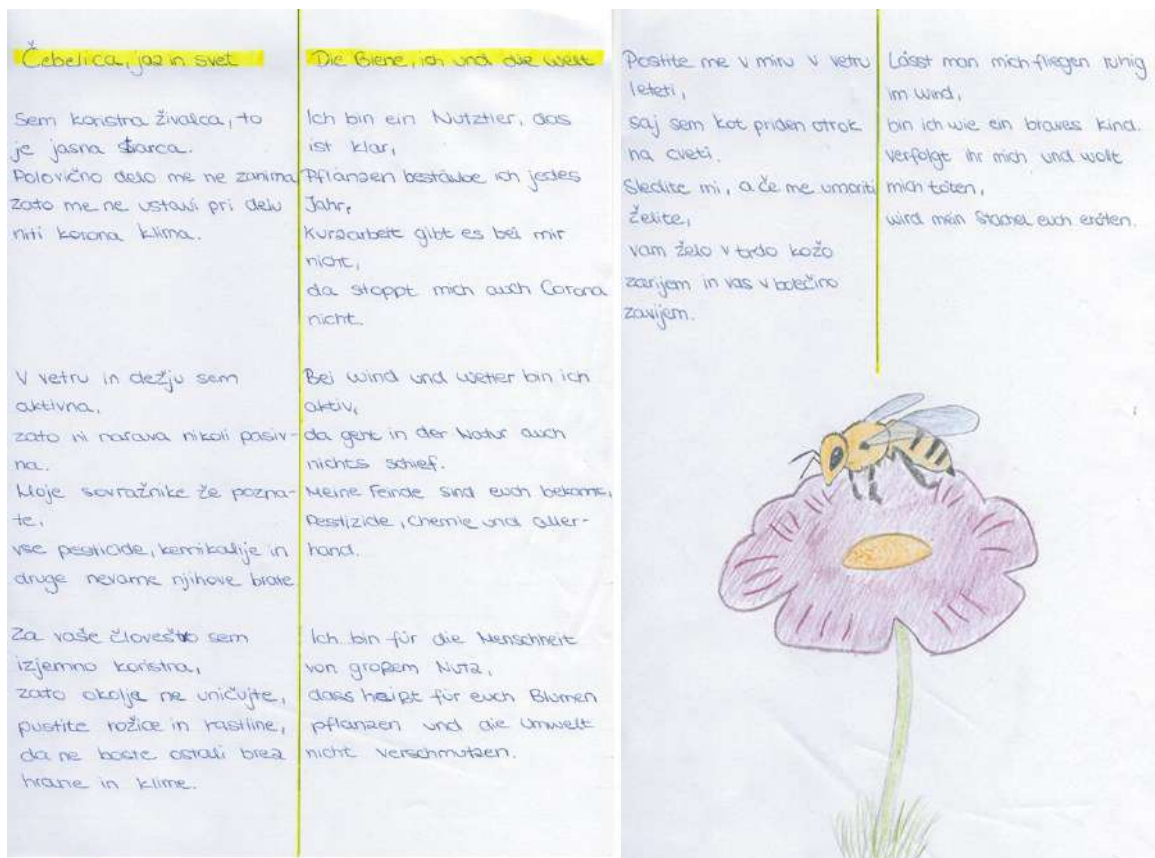 Čebelica, jaz in svet
Sem koristna živalca, to
je jasna štarca.
Polovično delo me ne zanima
zato me ne ustavi pri delu
niti korona klima.
V vetru in dežju sem
aktivna,
zato ni narava nikoli pasiv-
na.
Moje sovražnike že pozna-
te,
vse pesticide, kemikalije in
druge nevarne njihove brate
Za vaše človeštvo sem
izjemno koristna,
zato okolja ne uničujte,
pustite rožice in rastline,
da ne boste ostali brez
hrane in klime.
Die Biene, ich und die Welt
Ich bin ein Nutztier, das
ist klar,
Pflanzen bestäube ich jedes
Jahr,
Kurzarbeit gibt es bei mir
nicht,
da stoppt mich auch Corona
nicht.
Bei Wind und Wetter bin ich
aktiv,
da geht in der Natur auch
nichts schief.
Meine Feinde sind euch bekannt,
Pestizide, Chemie und aller-
hand.
Ich bin für die Menschheit
von großem Nutz,
dass heißt für euch Blumen
pflanzen und die Umwelt
nicht verschmutzen.
Postite me v miru v vetru
leteti,
saj sem kot priden otrok
na cveti.
Sledite mi, a če me umoriti
želite,
vam želo v trdo kožo
zarijem in vas v bolečino
zavijem.
Lässt man mich fliegen ruhig
im Wind,
bin ich wie ein braves Kind.
verfolgt ihr mich und wollt
mich töten,
wird mein Stachel euch eröten.